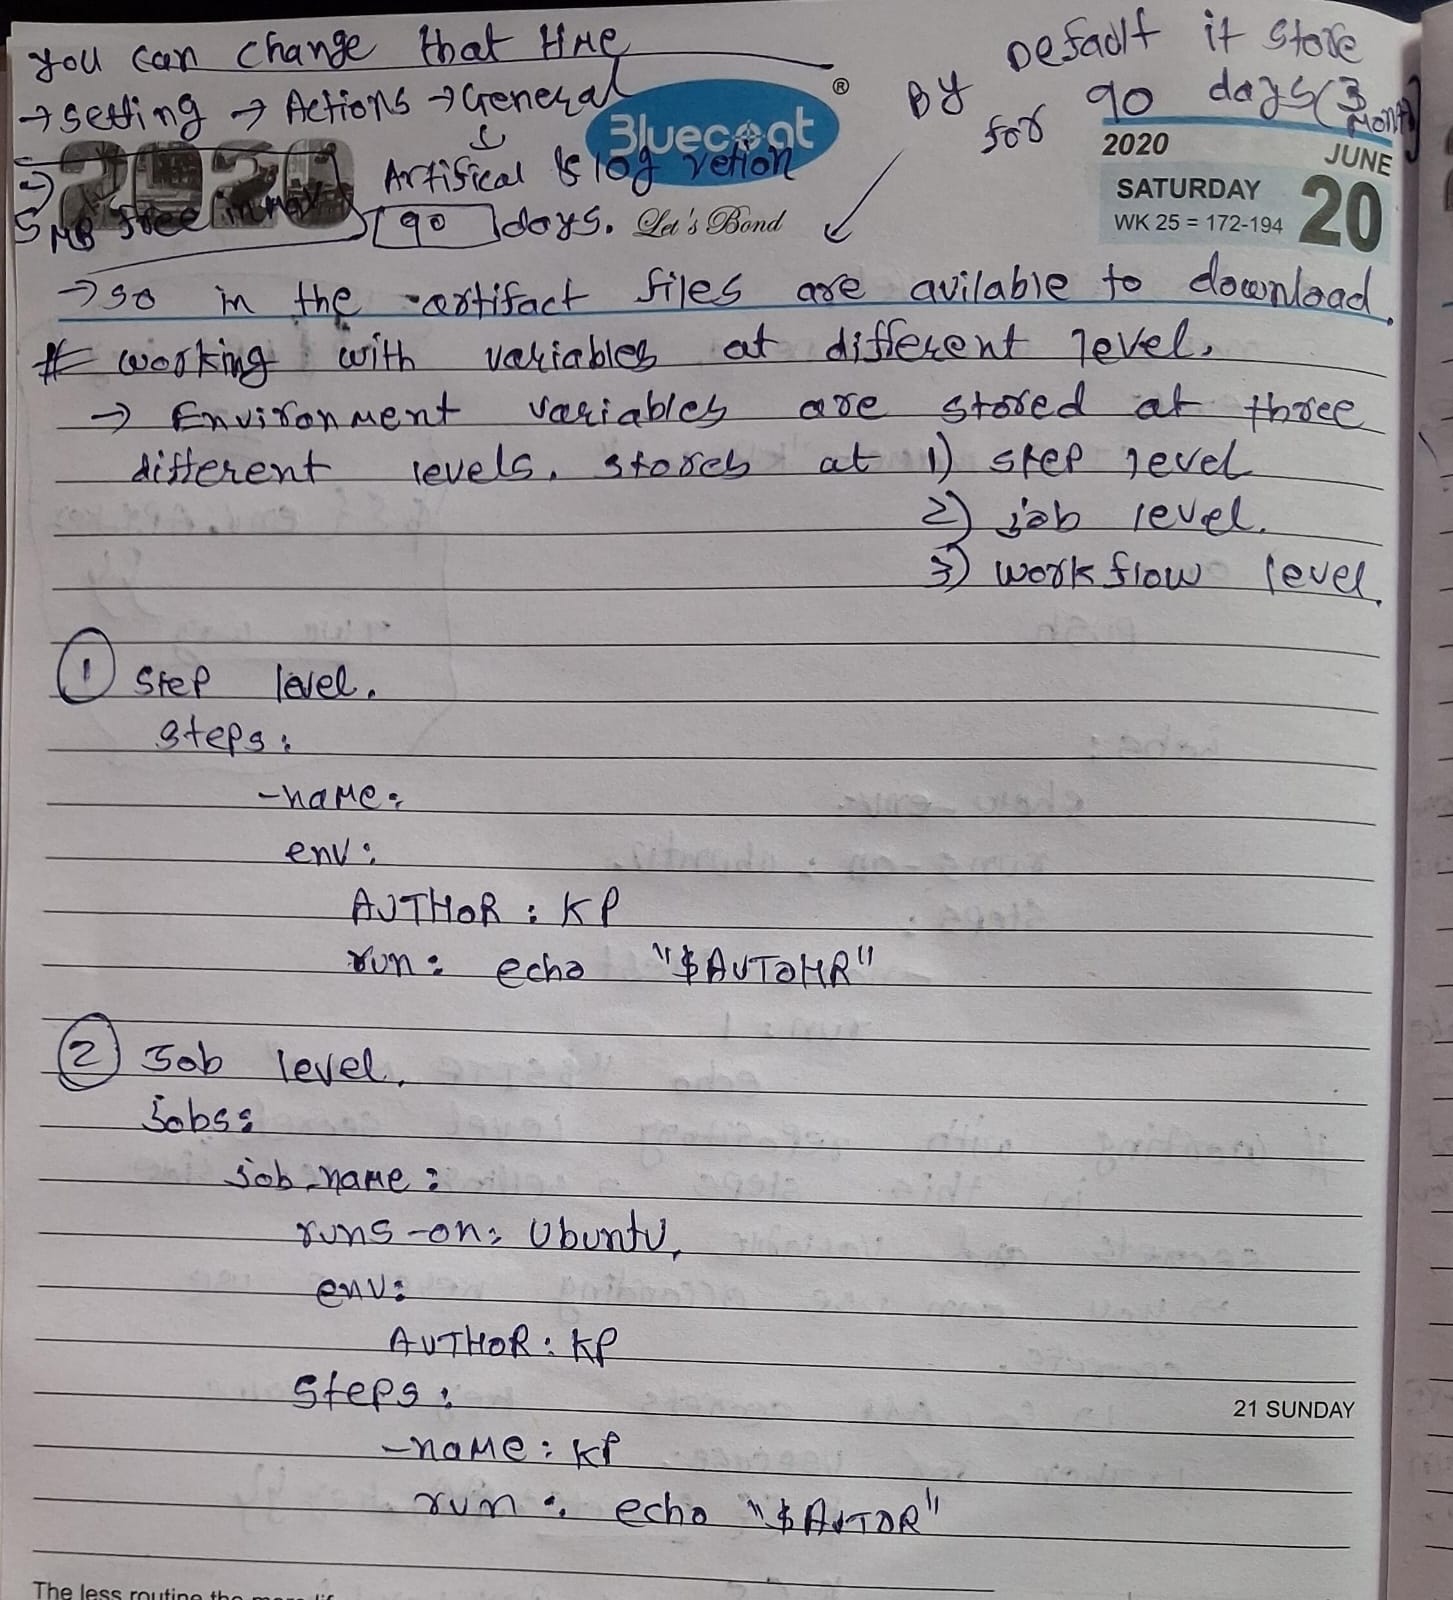 you can change that time
→ setting → Actions → General
By Default it store
for 90 days (3 Month)
Bluecoat ®
Let's Bond
2020
2020
JUNE
SATURDAY
20
WK 25 = 172-194
↓
Artifical & log retion
[90] days.
→ 5 MB free in max
→ so in the artifact files are avilable to download.
# working with variables at different level.
→ Environment variables are stored at three
different levels. stores at 1) step level
2) job level.
3) workflow level.
① Step level.
steps:
-name:
env:
AUTHOR : KP
run: echo "$AUTOHR"
② Job level.
jobs:
job_name:
runs-on: Ubuntu,
env:
AUTHOR: KP
steps:
-name: KP
run: echo "$AUTOR"
21 SUNDAY
The less routine the more lif